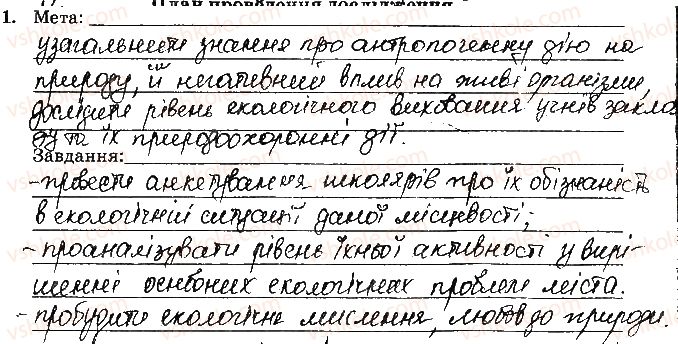 План проведення дослідження
1. Мета:
узагальнити знання про антропогенну дію на
природу, її негативний вплив на живі організми,
дослідити рівень екологічного виховання учнів закла
ду та їх природоохоронні дії.
Завдання:
- провести анкетування школярів про їх обізнаність
в екологічній ситуації даної місцевості;
- проаналізувати рівень їхньої активності у вирі-
шенні основних екологічних проблем міста.
- пробудити екологічне мислення, любов до природи.